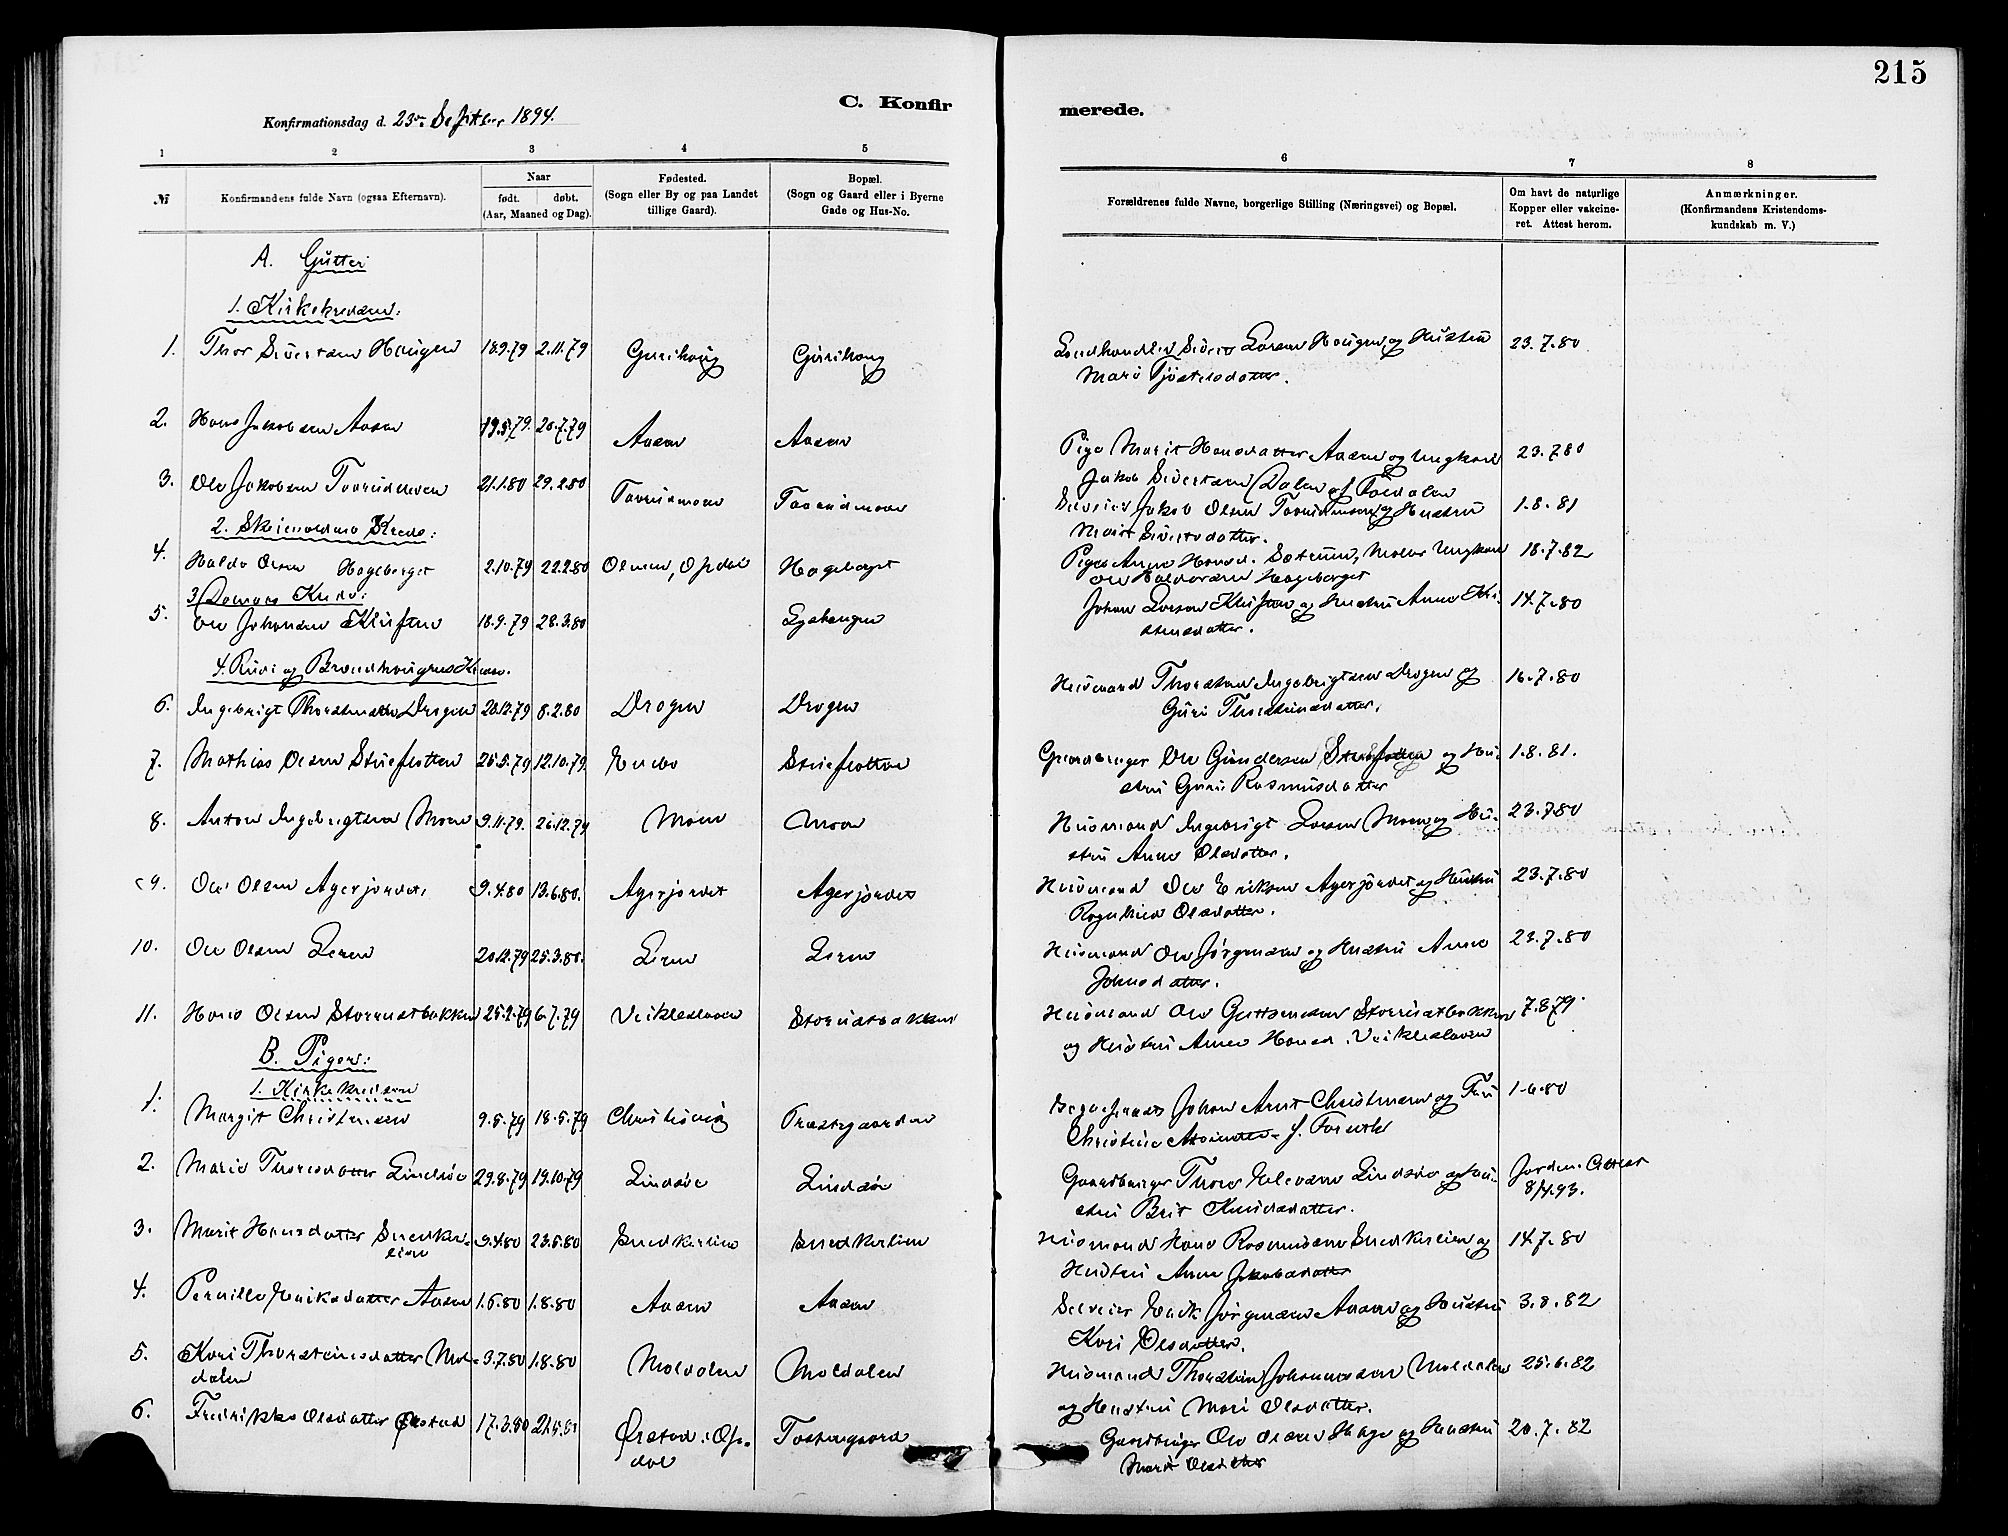 215
C. Konfirmerede.
Konfirmationsdag d. 23de September 1894.
1 2 3 4 5 6 7 8
№
Konfirmandens fulde Navn (ogsaa Efternavn).
Naar
født. døbt.
(Aar, Maaned og Dag).
Fødested.
(Sogn eller By og paa Landet
tillige Gaard).
Bopæl.
(Sogn og Gaard eller i Byerne
Gade og Hus-No.
Forældrenes fulde Navne, borgerlige Stilling (Næringsvei) og Bopæl.
Om havt de naturlige
Kopper eller vakcine-
ret. Attest herom.
Anmærkninger.
(Konfirmandens Kristendoms-
kundskab m. V.)
A. Gutter
1. Kirkekredsen:
1. Thor Sivertsen Haugen 18.9.79 2.11.79 Gurihaug Gurihaug Landhandler Sivert Larsen Haugen og Hustru 23.7.80
Mari Tjøstelsdatter.
2. Hans Jakobsen Aasen 19.5.79. 20.7.79 Aasen Aasen Pige Marit Hansdatter Aasen og Ungkarl 23.7.80
Jakob Sivertsen Dalen
3. Ole Jakobsen 21.1.80 29.2.80 Selveier Jakob Olsen og Hustru 1.8.81
Marit Sivertsdatter.
2. Kreds:
4. Haldo Olsen Hageberget 2.10.79 22.2.80 Opdal Hageberget Pige Anne Hansd. Ungkarl 18.7.82
Ole Haldorsen Hageberget
3. Kreds:
5. Ole Johansen Kluften 18.9.79 28.3.80 Johan Larsen Kluften og Hustru Anne Kri- 14.7.80
stensdatter.
4. Rise og Brandhaugens Kreds.
6. Ingebrigt Thorstensen Drogen 20.12.79 8.2.80 Drogen Drogen Husmand Thorsten Ingebrigtsen Drogen og 16.7.80
Guri Thorstensdatter.
7. Mathias Olsen Stueflotten 25.5.79 12.10.79 Stueflotten Gaardbruger Ole Gundersen Stueflotten og Hu- 1.8.81.
stru Guri Rasmusdatter
8. Anton Ingebrigtsen Moen 9.11.79. 26.12.79 Moen Moen Husmand Ingebrigt Larsen Moen og Hu- 23.7.80
stru Anne Olsdatter.
9. Ole Olsen Agerjordet 9.4.80 13.6.80. Agerjordet Agerjordet Husmand Ole Eriksen Agerjordet og Hustru 23.7.80
Ragnhild Olsdatter.
10. Ole Olsen Leren 20.12.79 25.3.80. Leren Leren Husmand Ole Jørgensen og Hustru Anne 23.7.80
Johnsdatter.
11. Hans Olsen Storrustbakken 25.2.79 6.7.79 Storrustbakken Husmand Ole Guttormsen Storrustbakken 7.8.79.
og Hustru Anne Hansd.
B. Piger:
1. Kirkekredsen
1. Margit Christensen 9.5.79 18.5.79 Præstegaarden Johan Arnt Christensen og Fru 1.6.80
Christine
2. Marie Thoresdatter Lindsøe 29.8.79 19.10.79 Lindsøe Lindsøe Gaardbruger Thore Lindsøe og Hu- Jordm. Attest
stru Brit Knudsdatter. 8/4.93.
3. Marit Hansdatter Snedker- 9.4.80 23.5.80 Snedkerlien Snedkerlien Husmand Hans Rasmussen Snedkerlien og 14.7.80
lien
Hustru Anne Jakobsdatter
4. Pernille Eriksdatter Aasen 1.6.80 1.8.80 Aasen Aasen Selveier Erik Jørgensen Aasen og Hustru 3.8.82
Kari Olsdatter.
5. Kari Thorsteinsdatter Mol- 3.7.80 1.8.80 Moldalen Moldalen Husmand Thorstein Johannessen Moldalen 25.6.82
dalen
og Hustru Mari Olsdatter.
6. Fredrikke Olsdatter Ørstad 17.3.80 Ørstad i Op- Gaardbruger Ole Olsen og Hustru 20.7.82
dal
Marit Olsdatter